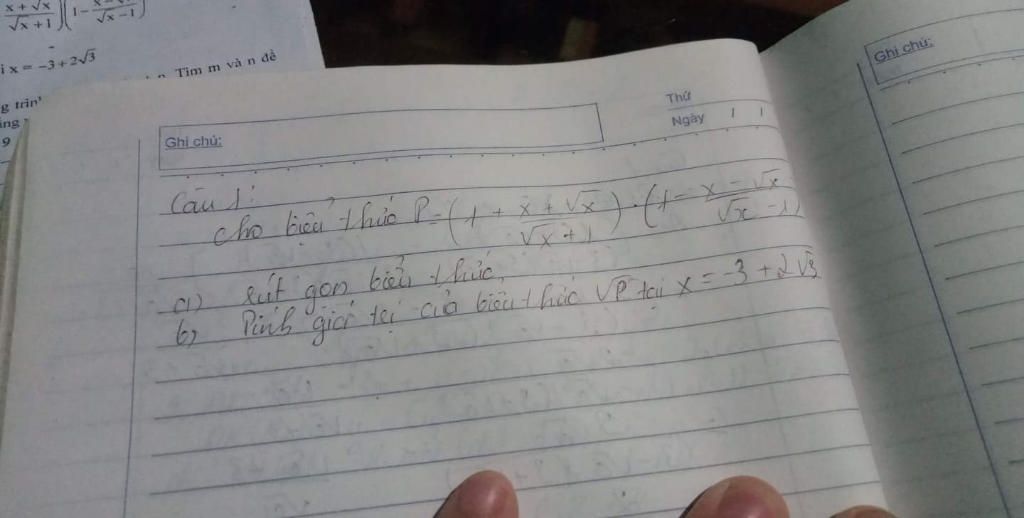 x + √x / √x + 1)(1 - / √x - 1)
i x = -3 + 2√3
Tìm m và n để
g trìn
ing
9
Ghi chú:
Thứ
Ngày / /
Ghi chú:
Câu 1:
cho biểu thức P = (1 + x + √x / √x + 1) · (1 - x - √x / √x - 1)
a) rút gọn biểu thức
b) Tính giá trị của biểu thức √P tại x = -3 + 2√3